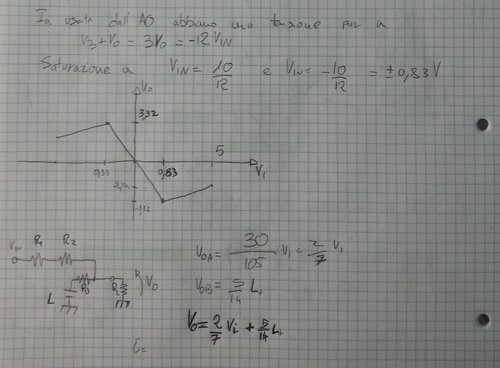 In uscita dall' AO abbiamo una tensione pari a
V3 + V0 = 3V0 = -12 VIN
Saturazione a VIN = 10/12 e VIN = -10/12 = ±0,83 V
V0
3,32
5
0,83
0,83
V1
-3,32
Vin R1 R2
R3
V0
L
V0A = 30/105 V1 = 2/7 V1
V0B = 5/14 L1
V0 = 2/7 Vi + 5/14 L1